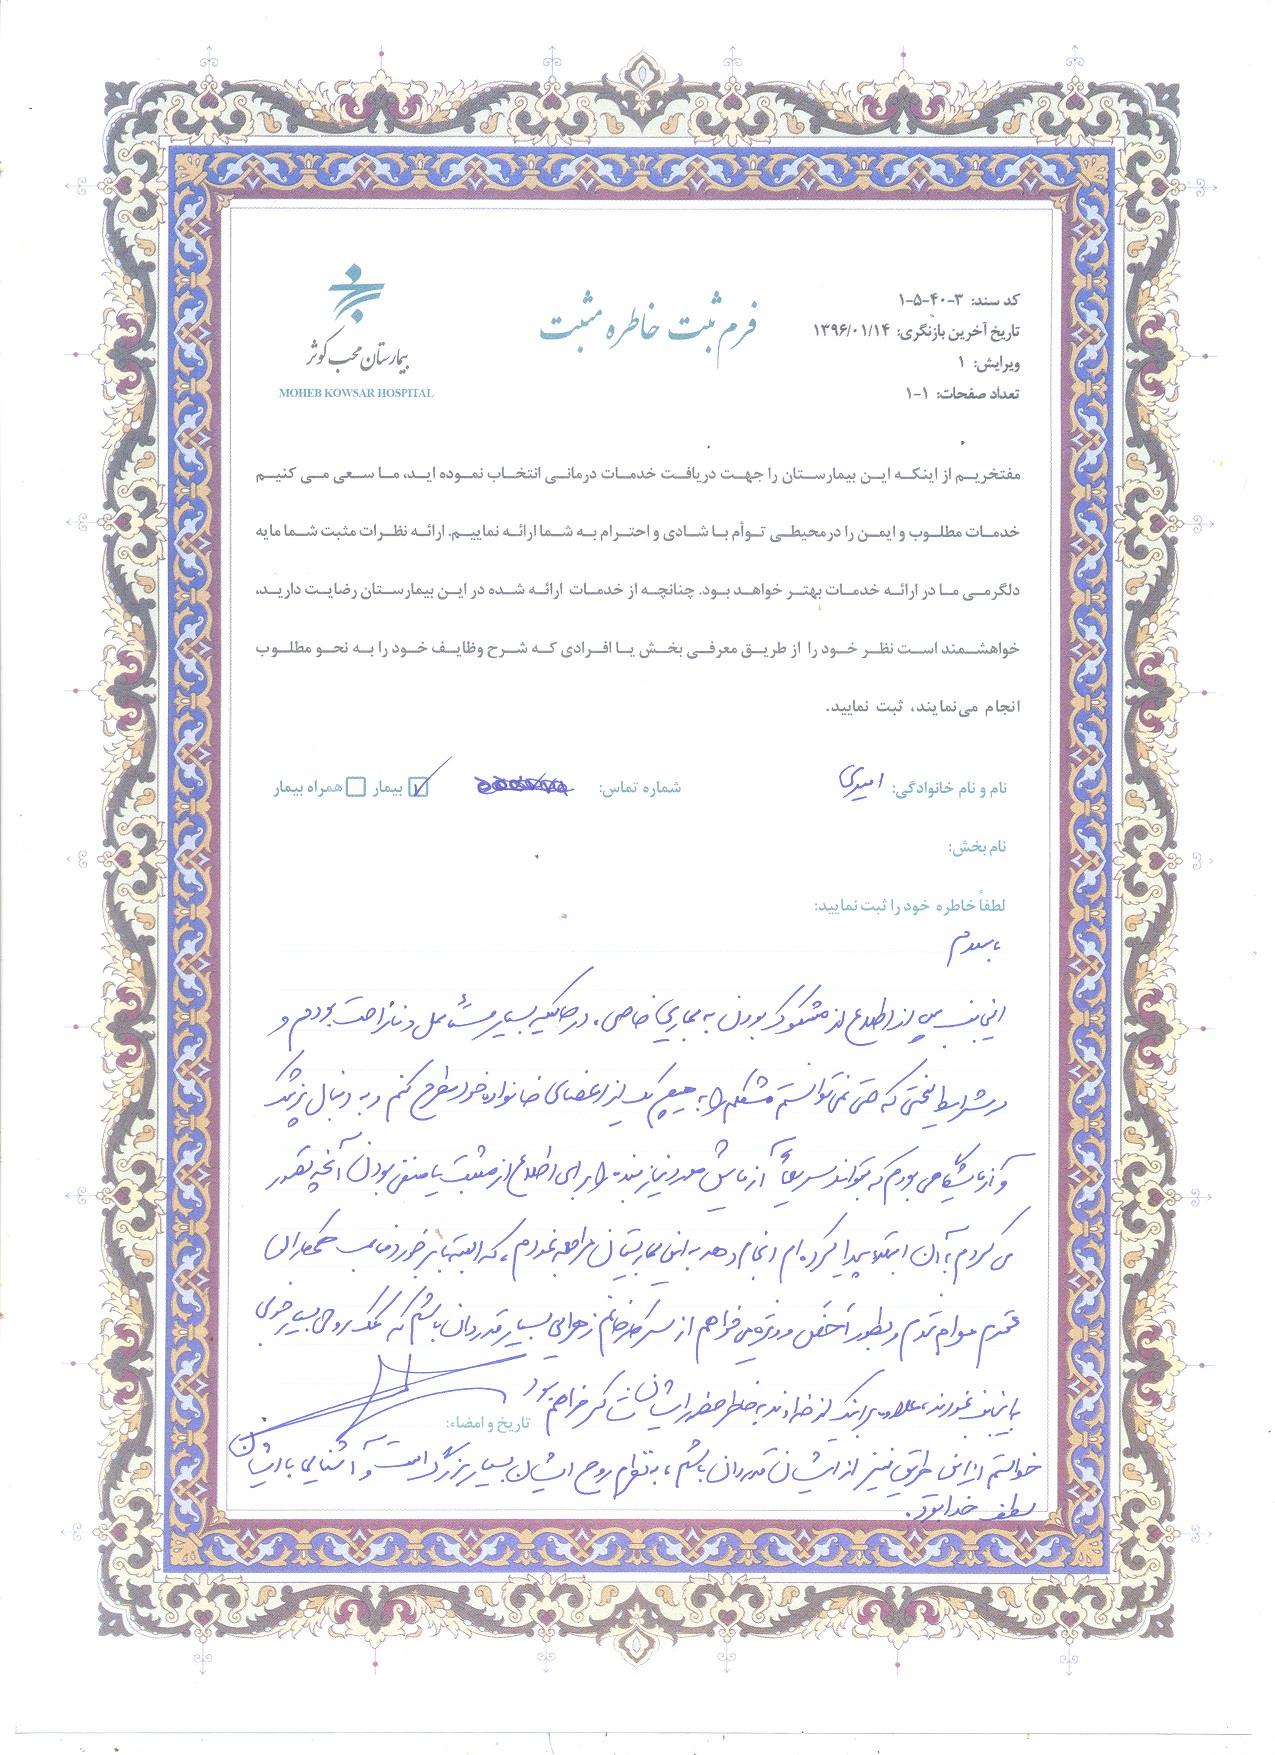 کد سند: ۳-۴۰-۵-۱
تاریخ آخرین بازنگری: ۱۳۹۶/۰۱/۱۴
ویرایش: ۱
تعداد صفحات: ۱-۱
فرم ثبت خاطره مثبت
بیمارستان محب کوثر
MOHEB KOWSAR HOSPITAL
مفتخریم از اینکه این بیمارستان را جهت دریافت خدمات درمانی انتخاب نموده اید، ما سعی می کنیم
خدمات مطلوب و ایمن را در محیطی توأم با شادی و احترام به شما ارائه نماییم. ارائه نظرات مثبت شما مایه
دلگرمی ما در ارائه خدمات بهتر خواهد بود. چنانچه از خدمات ارائه شده در این بیمارستان رضایت دارید،
خواهشمند است نظر خود را از طریق معرفی بخش یا افرادی که شرح وظایف خود را به نحو مطلوب
انجام می‌نمایند، ثبت نمایید.
نام و نام خانوادگی: امیدی شماره تماس: بیمار همراه بیمار
نام بخش:
لطفاً خاطره خود را ثبت نمایید:
باسلام
اینجانب پس از اطلاع از مشکوک بودن به بیماری خاصی، در حالیکه بسیار مستأصل و ناراحت بودم و
در شرایط سختی که حتی نمی توانستم مشکلم را به هیچ یک از اعضای خانواده خود مطرح کنم و به دنبال پزشک
و آزمایشگاهی بودم که بتواند سریعاً آزمایش مورد نیاز بنده را برای اطلاع از مثبت یا منفی بودن آنچه تصور
می کردم به آن ابتلا پیدا کرده ام انجام دهد به این بیمارستان مراجعه نمودم، که البته با برخورد مناسب همکاران
محترم مواجه شدم و بطور اخص و ویژه می خواهم از سرکار خانم زهرایی بسیار قدردان باشم که کمک روحی بسیار خوبی
به اینجانب نمودند، علاوه بر اینکه از خداوند به خاطر حضور ایشان شاکر خواهم بود
تاریخ و امضاء:
خواستم از این طریق نیز از ایشان قدردان باشم، به نظرم روح ایشان بسیار بزرگ است و آشنایی با ایشان
لطف خدا بود.